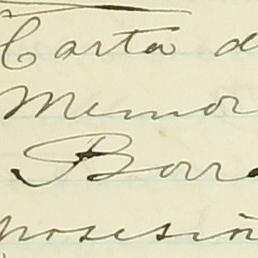 Carta d
Memor
Borr
posesión